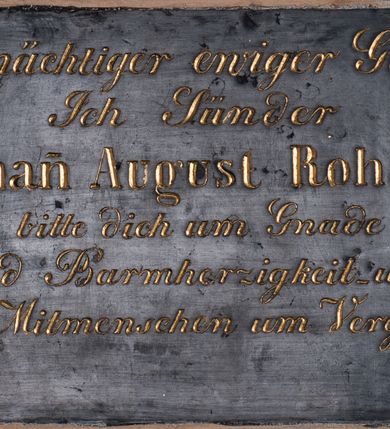 mächtiger ewiger G
Ich Sünder
nañ August Roh
bitte dich um Gnade
d Barmherzigkeit_u
Mitmenschen um Verg